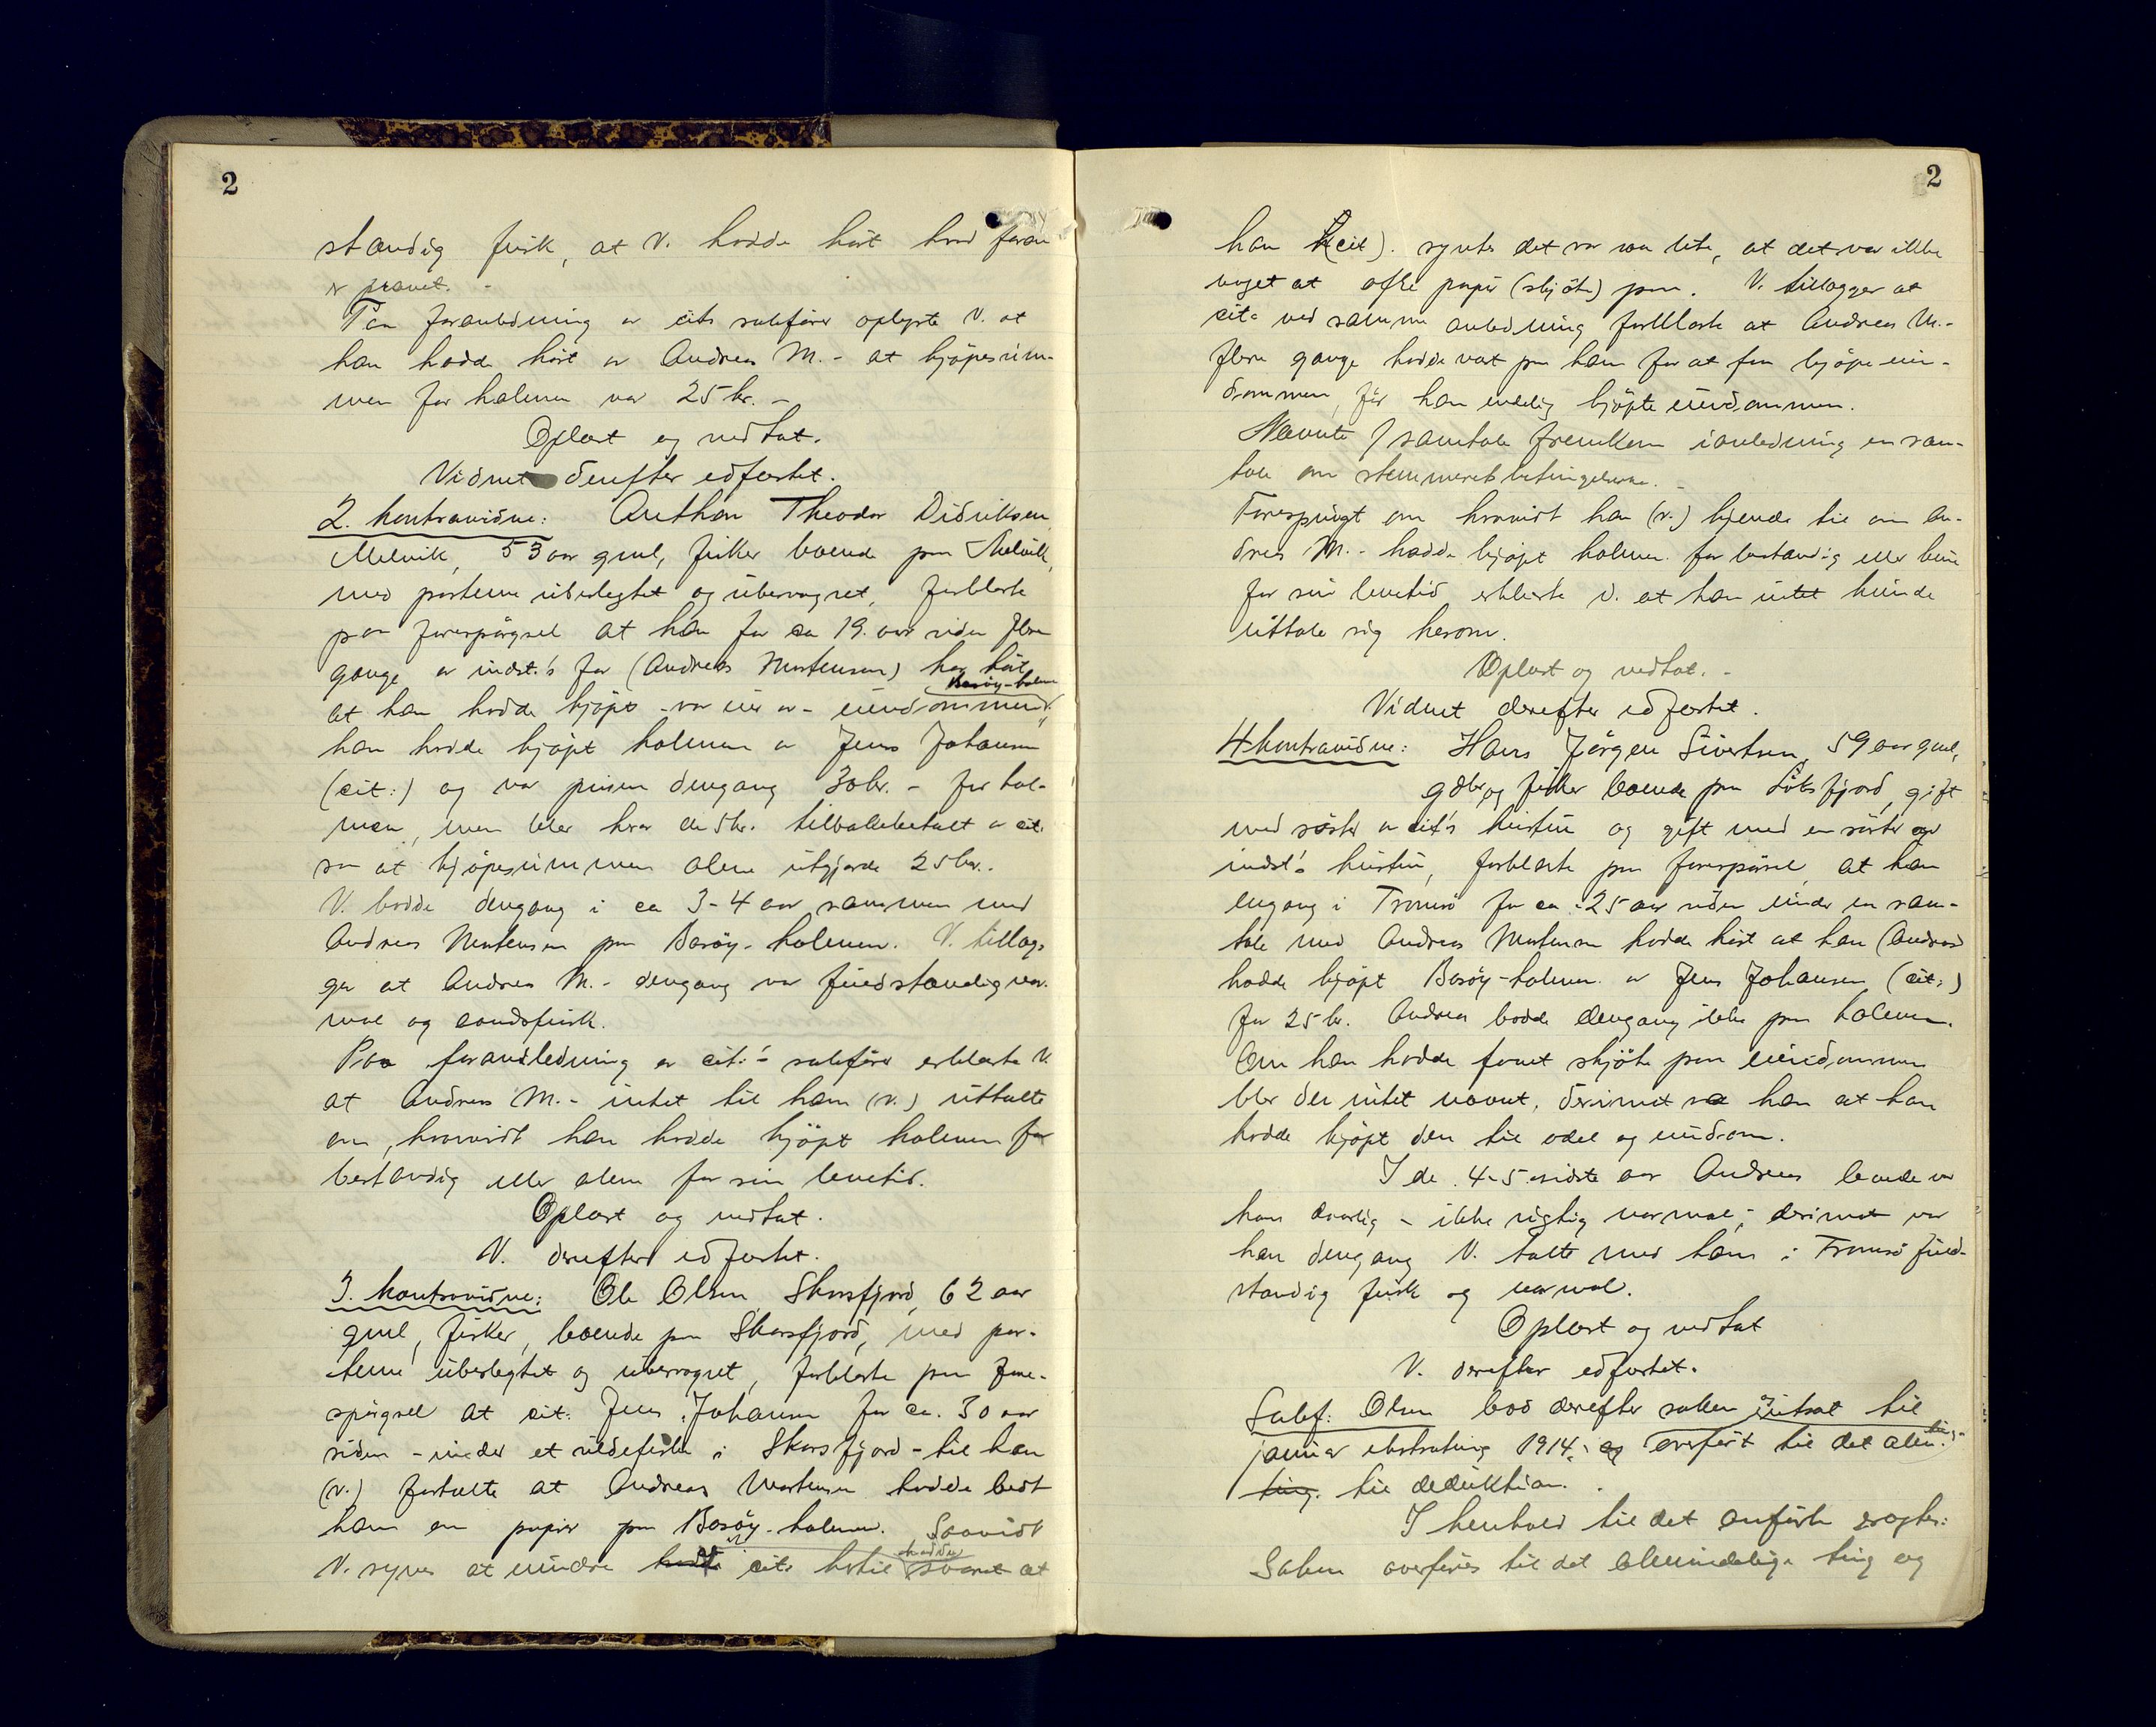 2
standig frisk, at V. hadde hørt hvad foran
er prøvet. -
Paa foranledning av cits sakfører oplyste V. at
han hadde hørt av Andreas M. - at kjøpesum-
men for holmen var 25 kr. -
Oplæst og vedtat.
Vidnet derefter edfæstet.
2. kontravidne: Anthon Theodor Didriksen
Melvik, 53 aar gml, fisker boende paa Melvik,
med parterne ubeslegtet og ubesvogret, forklarte
paa forespørgsel at han for ca 19. aar siden flere
gange av indst.'s far (Andreas Mortensen) har hørt
at han hadde kjøpt - var eier av - eiendommen Basøy-holmen,
han hadde kjøpt holmen av Jens Johansen
(cit:) og var prisen dengang 30 kr. - for hol-
men, men blev herav de 5 kr. tilbakebetalt av cit.
saa at kjøpesummen alene utgjorde 25 kr.
V. bodde dengang i ca 3-4 aar sammen med
Andreas Mortensen paa Basøy-holmen. V. tillæg-
ger at Andreas M. - dengang var fuldstændig nor-
mal og aandsfrisk.
Paa foranledning av cit:'s sakfører erklærte V.
at Andreas M. - intet til ham (v.) uttalte
om, hvorvidt han hadde kjøpt holmen for
bestandig eller alene for sin levetid.
Oplæst og vedtat.
V. derefter edfæstet.
3. kontravidne: Ole Olsen, Skarsfjord, 62 aar
gml, fisker, boende paa Skarsfjord, med par-
terne ubeslegtet og ubesvogret, forklarte paa fore-
spørgsel at cit: Jens Johansen for ca. 30 aar
siden - under et sildefiske i Skarsfjord - til ham
(v.) fortalte at Andreas Mortensen hadde bedt
ham om papir paa Basøy-holmen. Saavidt
V. synes at mindre cit. hertil hadde svaret at
2
han (cit). syntes det var saa lite, at det var ikke
noget at ofre papir (skjøte) paa. V. tillægger at
cit: ved samme anledning forklarte at Andreas M. -
flere gange hadde vært paa ham for at faa kjøpe eien-
dommen, før han endelig kjøpte eiendommen.
Nævnte samtale fremkom i anledning en sam-
tale om stemmeretsbetingelserne. -
Forespurgt om hvorvidt han (v.) kjendte til om An-
dreas M. - hadde kjøpt holmen for bestandig eller kun
for sin levetid erklærte V. at han intet kunde
uttale sig herom.
Oplæst og vedtat. -
Vidnet derefter edfæstet.
4 kontravidne: Hans Jørgen Sivertsen, 59 aar gml,
gbr. og fisker boende paa Løksfjord, gift
med søster av cit's hustru og gift med en søster av
indst's hustru, forklarte paa forespørsel, at han
engang i Tromsø for ca. 25 aar siden under en sam-
tale med Andreas Mortensen hadde hørt at han (Andreas
hadde kjøpt Basøy-holmen av Jens Johansen (cit:)
for 25 kr. Andreas bodde dengang ikke paa holmen.
Om han hadde faaet skjøte paa eiendommen
blev der intet nævnt, derimot sa han at han
hadde kjøpt den til odel og eiendom.
I de 4-5 sidste aar Andreas levede var
han daarlig - ikke rigtig normal; derimot var
han dengang V. talte med ham i Tromsø fuld-
standig frisk og normal.
Oplæst og vedtat
V. derefter edfæstet.
Sakf: Olsen bad derefter saken utsat til
januar ekstrating 1914, og overført til det alm.
ting. til deduktion.
I henhold til det anførte
Saken overføres til det almindelige ting og